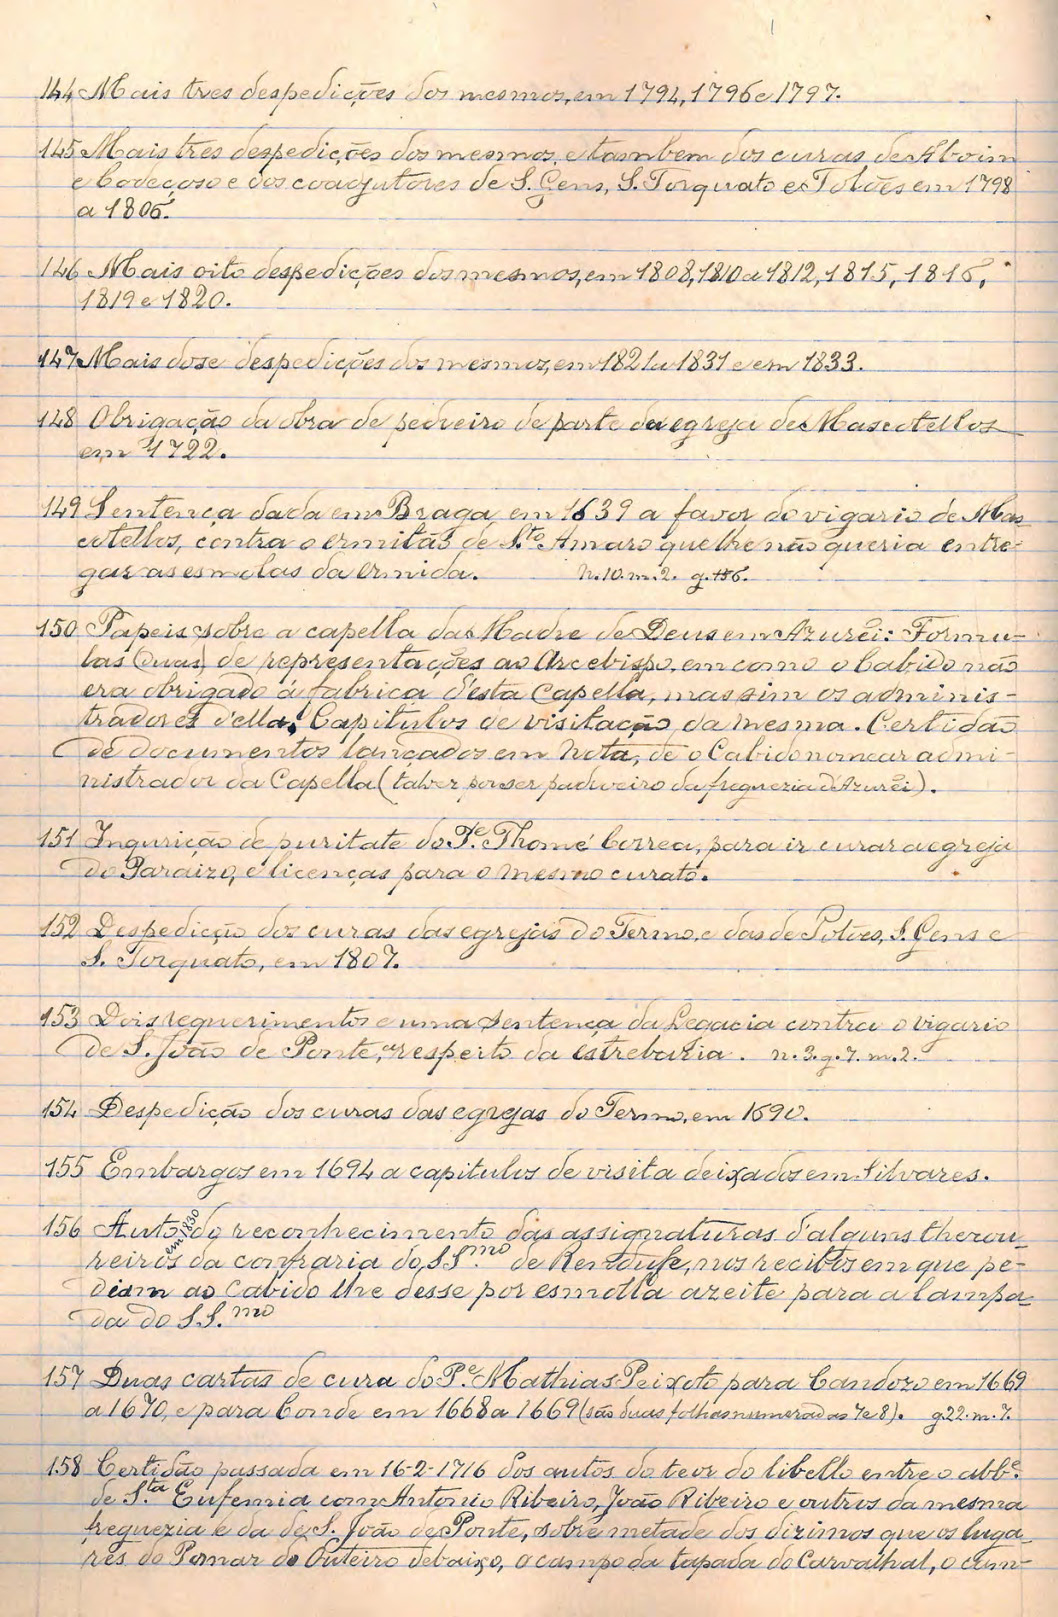 144 Mais tres despedições dos mesmos, em 1794, 1796 e 1797.
145 Mais tres despedições dos mesmos, e tambem dos curas de Aboim
e Codeçoso e dos coadjutores de S. Gens, S. Torquato e Tolões em 1798
a 1806.
146 Mais oito despedições dos mesmos, em 1808, 1810 a 1812, 1815, 1816,
1819 e 1820.
147 Mais dose despedições dos mesmos, em 1821 a 1831 e em 1833.
148 Obrigação da obra de pedreiro de parte da egreja de Mascotellos
em 1722.
149 Sentença dada em Braga, em 1639 a favor do vigario de Mas-
cotellos, contra o ermitão de S.to Amaro que lhe não queria entre-
gar as esmolas da ermida. n. 10. m. 2. g.
150 Papeis sobre a capella da Madre de Deus em Azurêi: Formu-
las (duas) de representações ao Arcebispo, em como o Cabido não
era obrigado á fabrica d'esta Capella, mas sim os adminis-
tradores d'ella; Capitulos de visitação da mesma. Certidão
de documentos lançados em Nota, de o Cabido nomear admi-
nistrador da Capella (talvez por ser padroeiro da freguezia d'Azurêi).
151 Inquirição de puritate do P.e Thomé Correa, para ir curar a egreja
do Paraizo, e licenças para o mesmo curato.
152 Despedição dos curas das egrejas do Termo, e das de Tolões, S. Gens e
S. Torquato, em 1807.
153 Dois requerimentos e uma sentença da Legacia contra o vigario
de S. João de Ponte, a respeito da estrebaria. n. 3. g. 7. m. 2.
154 Despedição dos curas das egrejas do Termo, em 1690.
155 Embargos em 1694 a capitulos de visita deixados em Silvares.
156 Auto em 1830 do reconhecimento das assignaturas d'alguns thezou-
reiros da confraria do SS.mo de Rendufe, nos recibos em que pe-
diam ao Cabido lhe desse por esmolla azeite para a lampa-
da do S.S.mo
157 Duas cartas de cura do P.e Mathias Peixoto para Candozo em 1669
a 1670, e para Conde em 1668 a 1669 (são duas folhas numeradas 7 e 8). g. 22. m. 7.
158 Certidão passada em 16-2-1716 dos autos do teor do libello entre o abb.e
de S.ta Eufemia com Antonio Ribeiro, João Ribeiro e outros da mesma
freguezia e da de S. João de Ponte, sobre metade dos dizimos que os luga-
res do Pomar do Outeiro debaixo, o campo da tapada do Carvalhal, o cam-